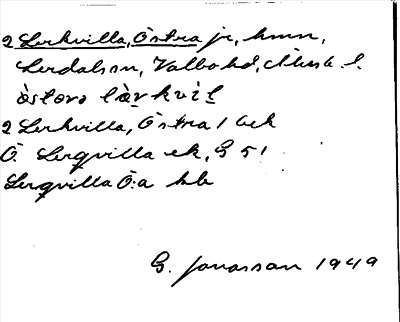 2 Lerkvilla, Östra jr, hmn,
Lerdalssn, Valbo hd, Älvsb. l.
ὰstorə lὰrkvìl
2 Lerkvilla, Östra 1 Gek
Ö. Lerqvilla ek, G 51
Lerqvilla Ö:a hb
G. Jonasson 1949